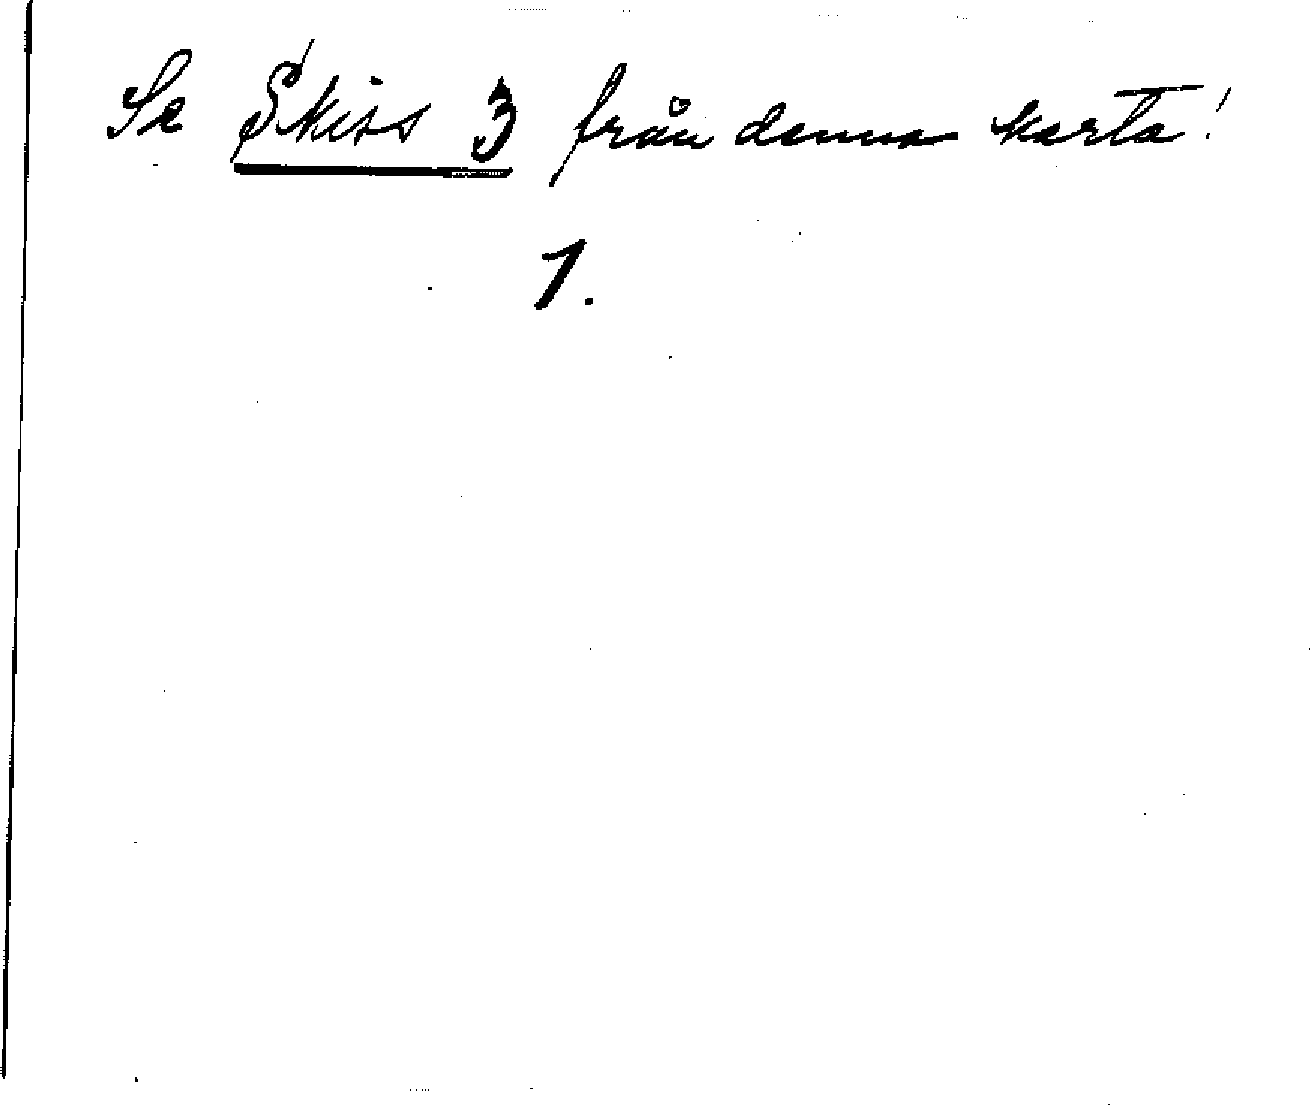 Se Skiss 3 från denna karta!
1.